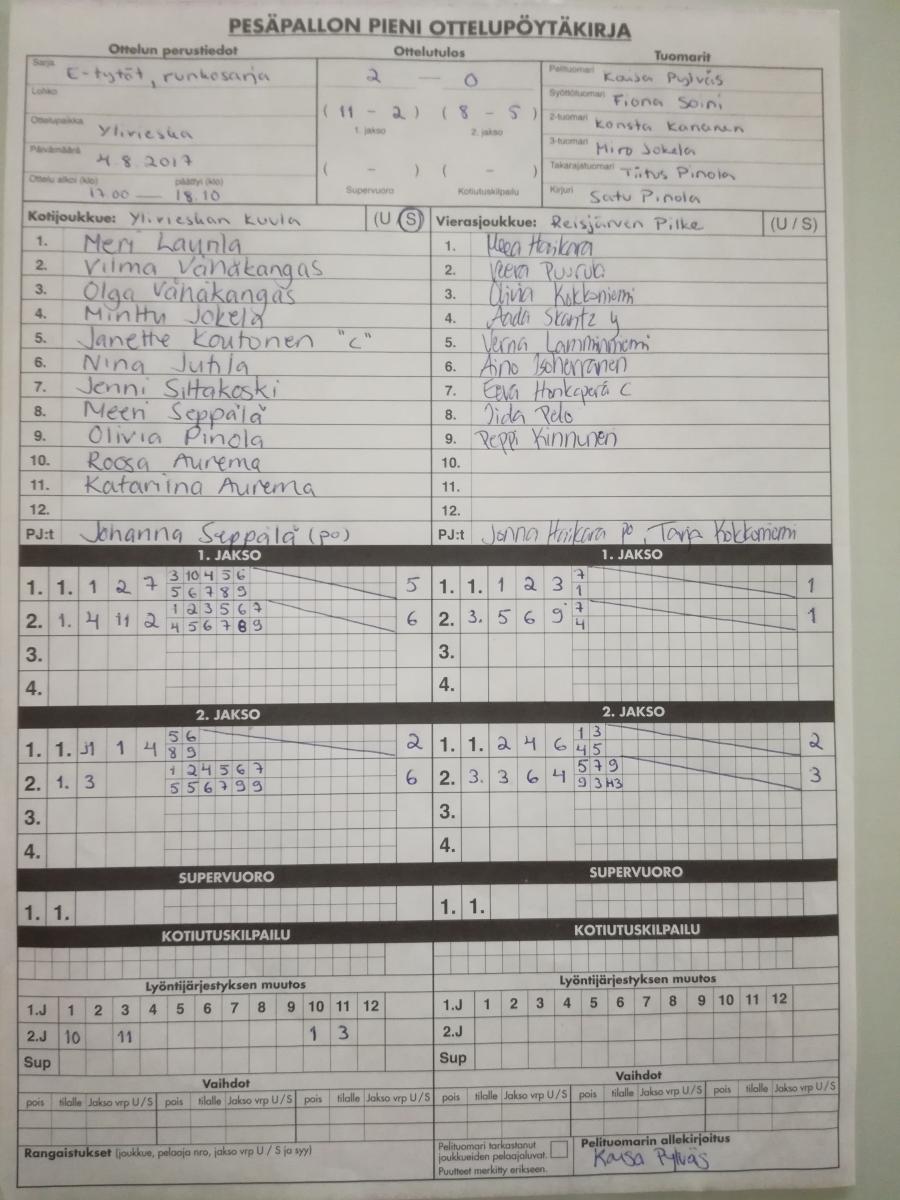 PESÄPALLON PIENI OTTELUPÖYTÄKIRJA
Ottelun perustiedot
Sarja E-tytöt, runkosarja
Lohko
Ottelupaikka Ylivieska
Päivämäärä 4.8.2017
Ottelu alkoi (klo) päättyi (klo)
17.00 — 18.10
Ottelutulos
2 — 0
( 11 - 2 ) ( 8 - 5 )
1. jakso 2. jakso
( - ) ( - )
Supervuoro Kotiutuskilpailu
Tuomarit
Pelituomari Kaisa Pylväs
Syöttötuomari Fiona Soini
2-tuomari Konsta Kananen
3-tuomari Miro Jokela
Takarajatuomari Tiitus Pinola
Kirjuri Satu Pinola
Kotijoukkue: Ylivieskan Kuula (U S)
1. Meri Laurila
2. Vilma Vähäkangas
3. Olga Vähäkangas
4. Minttu Jokela
5. Janette Koutonen "c"
6. Nina Juhla
7. Jenni Siltakoski
8. Meeri Seppälä
9. Olivia Pinola
10. Roosa Aurema
11. Katariina Aurema
12.
PJ:t Johanna Seppälä (po)
Vierasjoukkue: Reisjärven Pilke (U / S)
1. Haikara
2. Veera Puurula
3. Olivia Kokkoniemi
4. Aada Skantz
5. Verna Lamminniemi
6. Aino Isoherranen
7. Eeva Honkaperä C
8. Iida Pelo
9. Peppi Kinnunen
10.
11.
12.
PJ:t Jonna Haikara po, Tarja Kokkoniemi
1. JAKSO
1. 1. 1 2 7 3 10 4 5 6 5
5 6 7 8 9
2. 1. 4 11 2 1 2 3 5 6 7 6
4 5 6 7 8 9
3.
4.
1. JAKSO
1. 1. 1 2 3 7 1
1
2. 3. 5 6 9 7 1
4
3.
4.
2. JAKSO
1. 1. 11 1 4 5 6 2
8 9
2. 1. 3 1 2 4 5 6 7 6
5 5 6 7 9 9
3.
4.
2. JAKSO
1. 1. 2 4 6 1 3 2
4 5
2. 3. 3 6 4 5 7 9 3
9 3
3.
4.
SUPERVUORO
1. 1.
SUPERVUORO
1. 1.
KOTIUTUSKILPAILU
KOTIUTUSKILPAILU
Lyöntijärjestyksen muutos
1.J 1 2 3 4 5 6 7 8 9 10 11 12
2.J 10 11 1 3
Sup
Lyöntijärjestyksen muutos
1.J 1 2 3 4 5 6 7 8 9 10 11 12
2.J
Sup
Vaihdot
pois tilalle Jakso vrp U / S pois tilalle Jakso vrp U / S pois tilalle Jakso vrp U / S
Vaihdot
pois tilalle Jakso vrp U / S pois tilalle Jakso vrp U / S pois tilalle Jakso vrp U / S
Rangaistukset (joukkue, pelaaja nro, jakso vrp U / S ja syy)
Pelituomari tarkastanut
joukkueiden pelaajaluvat.
Puutteet merkitty erikseen.
Pelituomarin allekirjoitus
Kaisa Pylväs